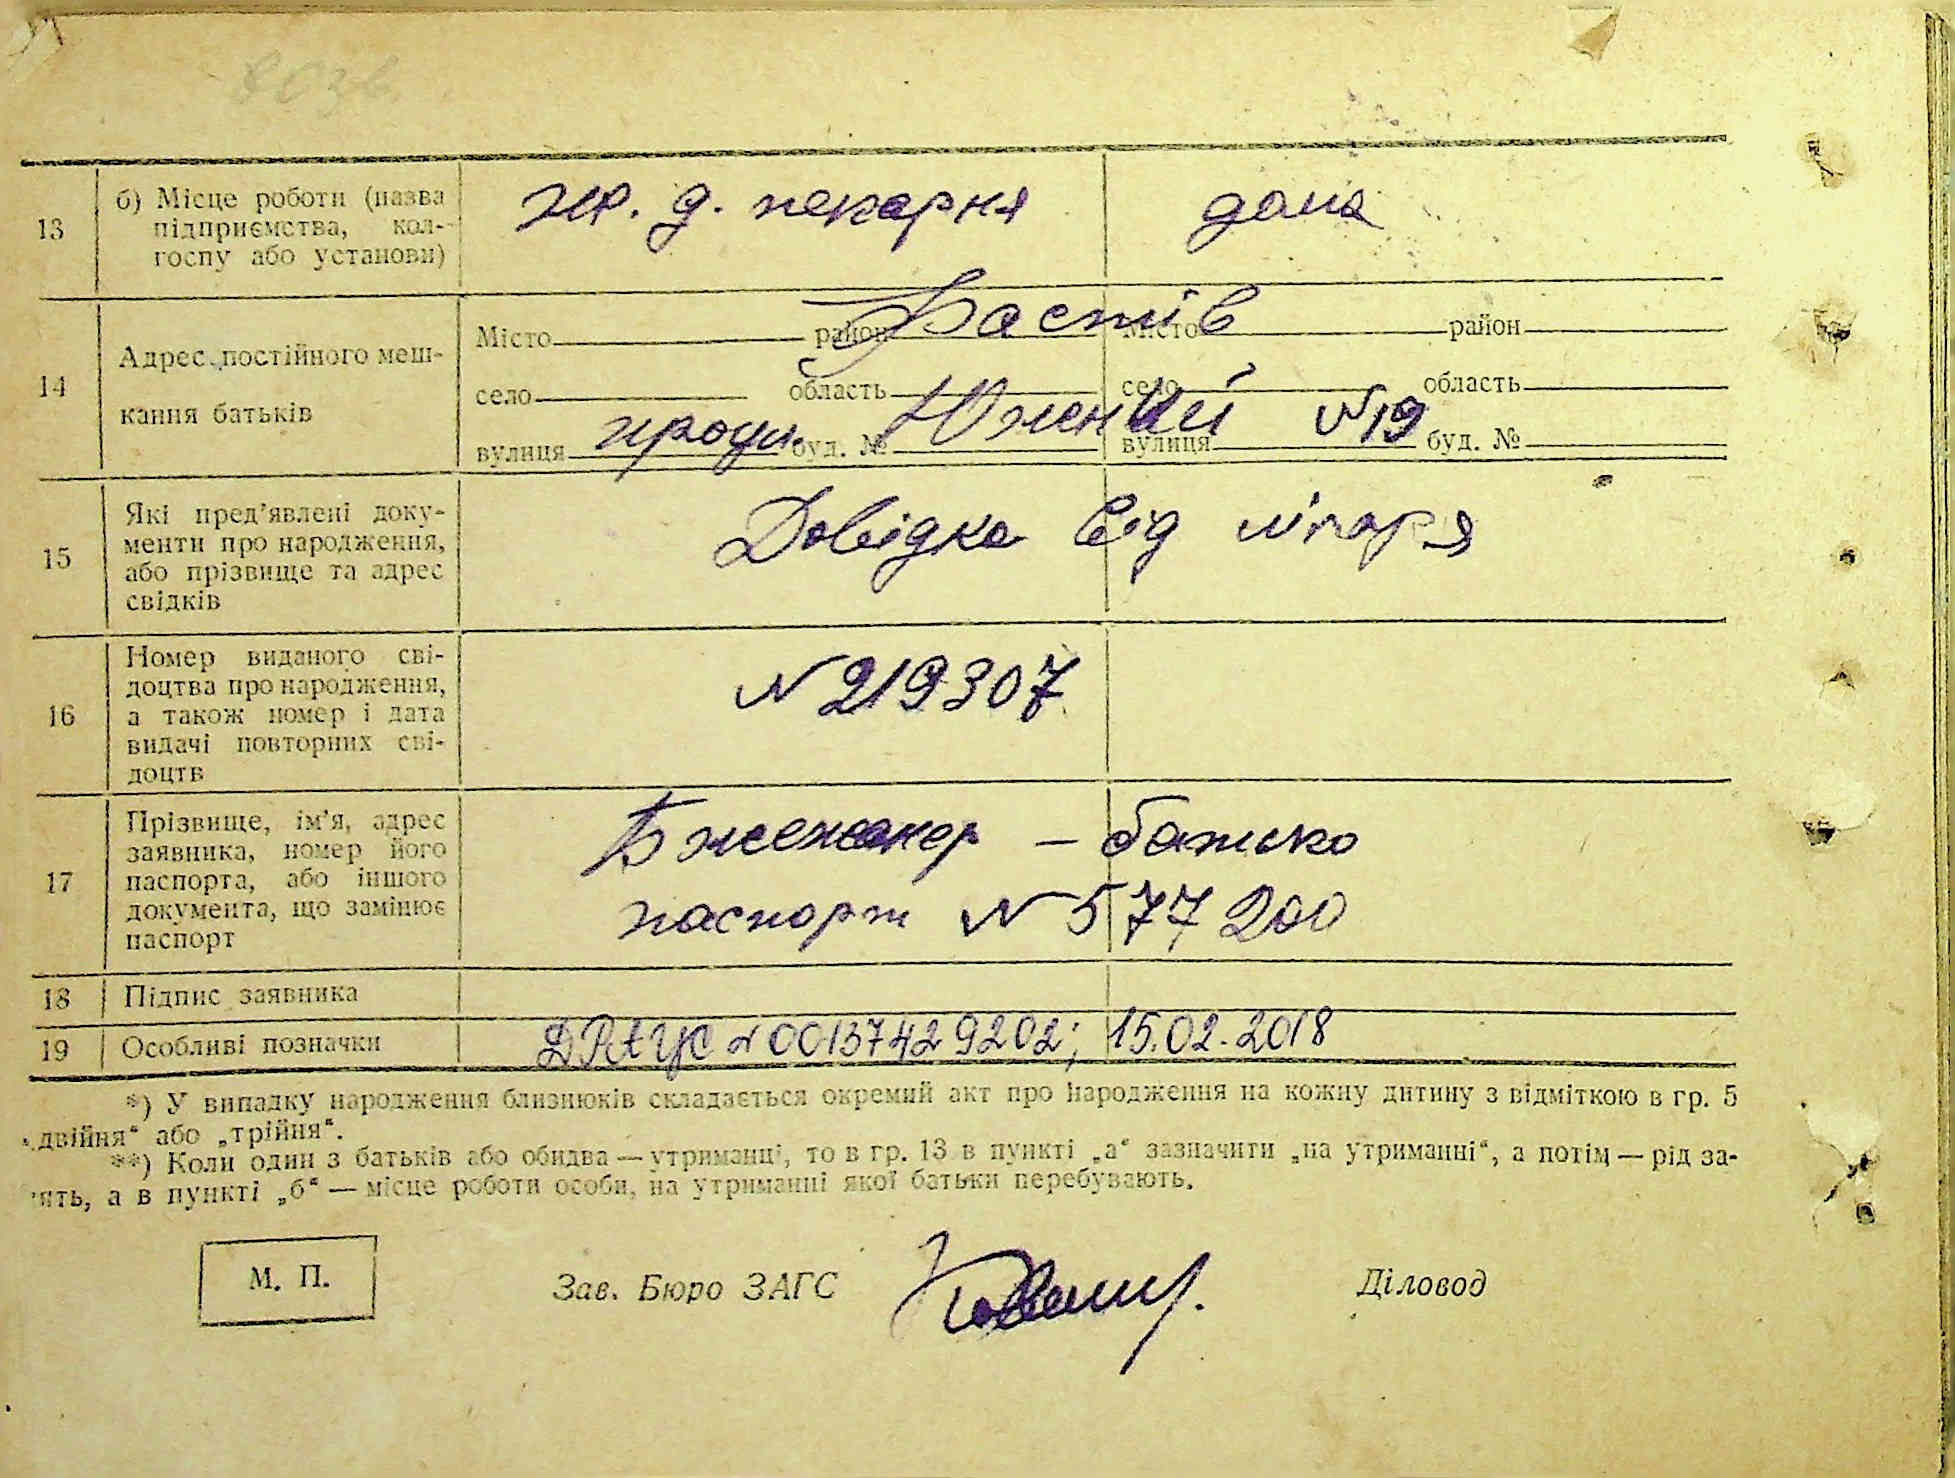 возв.
13
б) Місце роботи (назва
підприємства, кол-
госпу або установи)
ж. д. пекарня
дома
14
Адрес постійного меш-
кання батьків
Місто район Місто район
Фастів
село область село область
вулиця буд. № вулиця буд. №
Южний №19
15
Які пред’явлені доку-
менти про народження,
або прізвище та адрес
свідків
Довідка від лікаря
16
Номер виданого сві-
доцтва про народження,
а також номер і дата
видачі повторних сві-
доцтв
№ 219307
17
Прізвище, ім’я, адрес
заявника, номер його
паспорта, або іншого
документа, що замінює
паспорт
– батько
паспорт № 577200
18
Підпис заявника
19
Особливі позначки
ДРАЦС № 00137429202; 15.02.2018
*) У випадку народження близнюків складається окремий акт про народження на кожну дитину з відміткою в гр. 5
„двійня“ або „трійня“.
**) Коли один з батьків або обидва — утриманці, то в гр. 13 в пункті „а“ зазначити „на утриманні“, а потім — рід за-
нять, а в пункті „б“ — місце роботи особи, на утриманні якої батьки перебувають.
М. П.
Зав. Бюро ЗАГС
Діловод